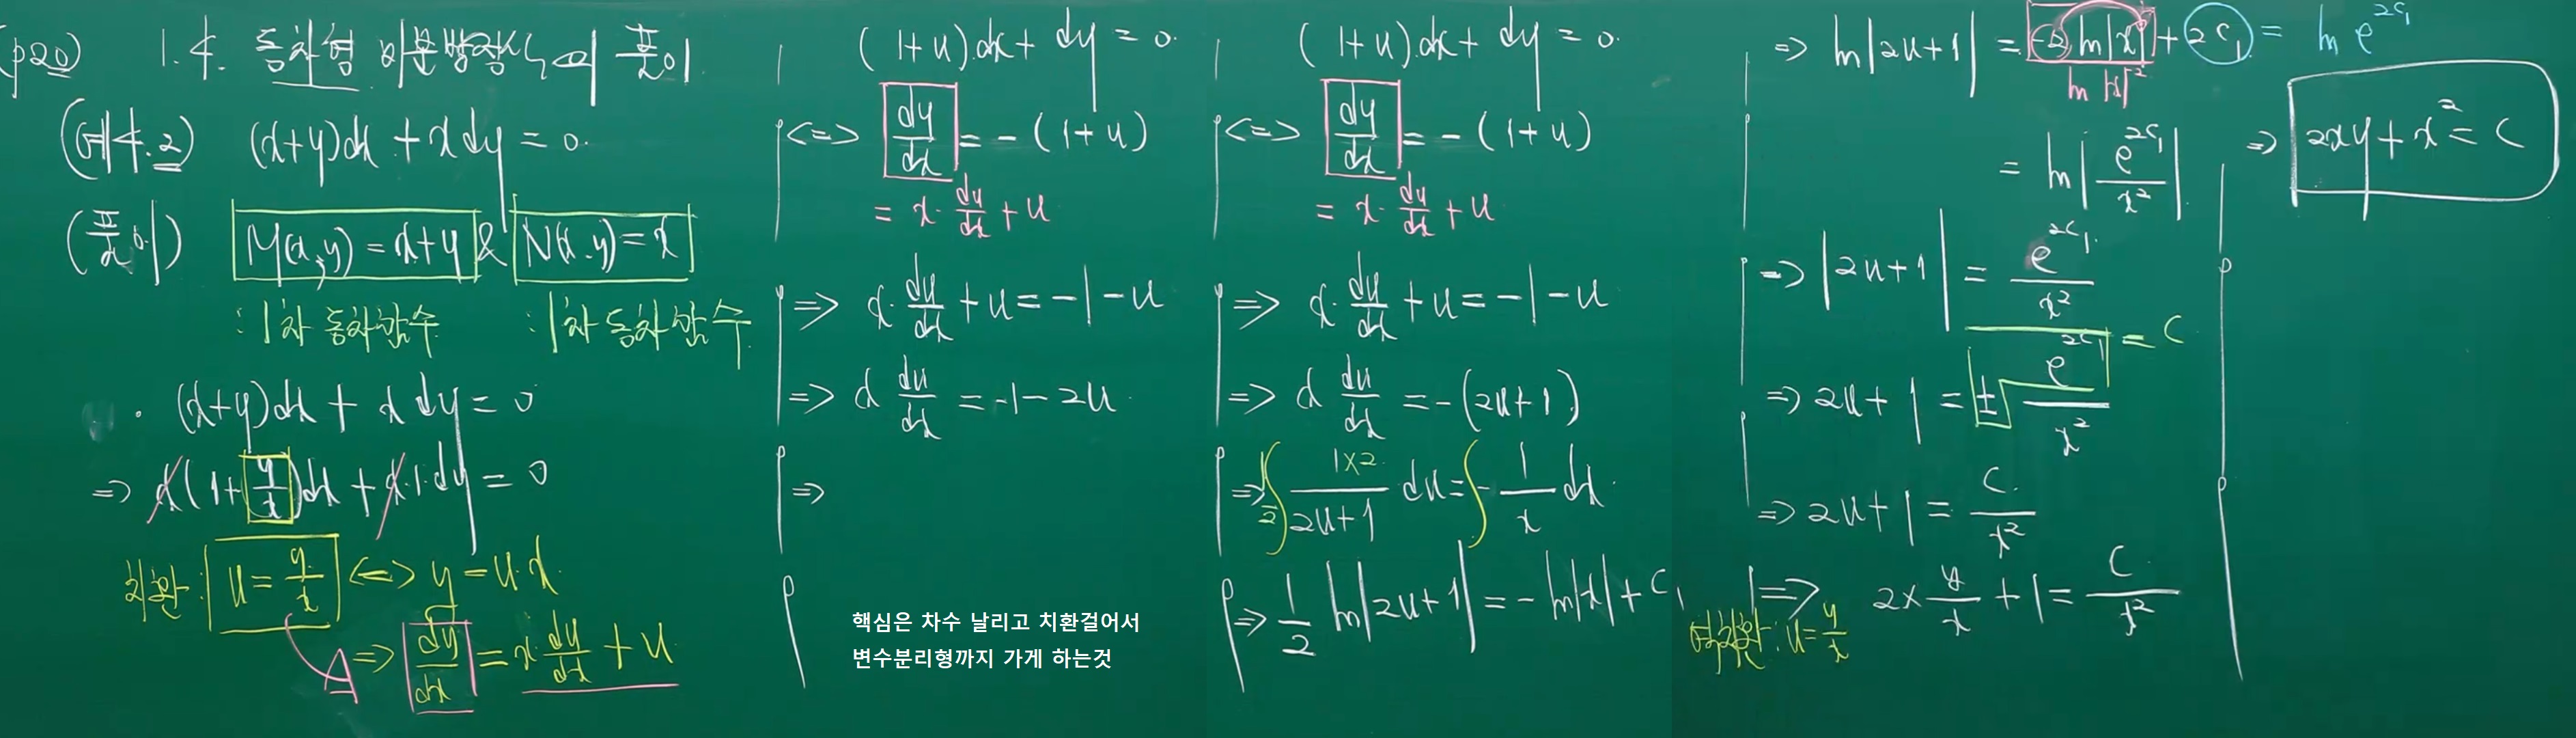 (p20) 1.4. 동차형 미분방정식의 풀이
(예4.2) (x+y)dx + x dy = 0.
(풀이) M(x,y) = x+y & N(x,y) = x
: 1차 동차함수 : 1차 동차함수
· (x+y)dx + x dy = 0
=> x(1+y/x)dx + x·1·dy = 0
치환: u = y/x <=> y = u·x
=> dy/dx = x·du/dx + u
(1+u)dx + dy = 0.
<=> dy/dx = -(1+u)
= x·du/dx + u
=> x·du/dx + u = -1-u
=> x du/dx = -1-2u.
=>
핵심은 차수 날리고 치환걸어서
변수분리형까지 가게 하는것
(1+u)dx + dy = 0.
<=> dy/dx = -(1+u)
= x·du/dx + u
=> x·du/dx + u = -1-u
=> x du/dx = -(2u+1)
=> 1/2 ∫ 1×2/(2u+1) du = ∫ -1/x dx.
=> 1/2 ln|2u+1| = -ln|x| + C₁
=> ln|2u+1| = -2 ln|x| + 2C₁ = ln e^{2C₁}
ln|x|^{-2}
= ln|e^{2C₁}/x²|
=> |2u+1| = e^{2C₁}/x²
=> 2u+1 = ± e^{2C₁}/x² = C
=> 2u+1 = C/x²
=> 2×y/x + 1 = C/x²
역치환: u = y/x
=> 2xy + x² = C